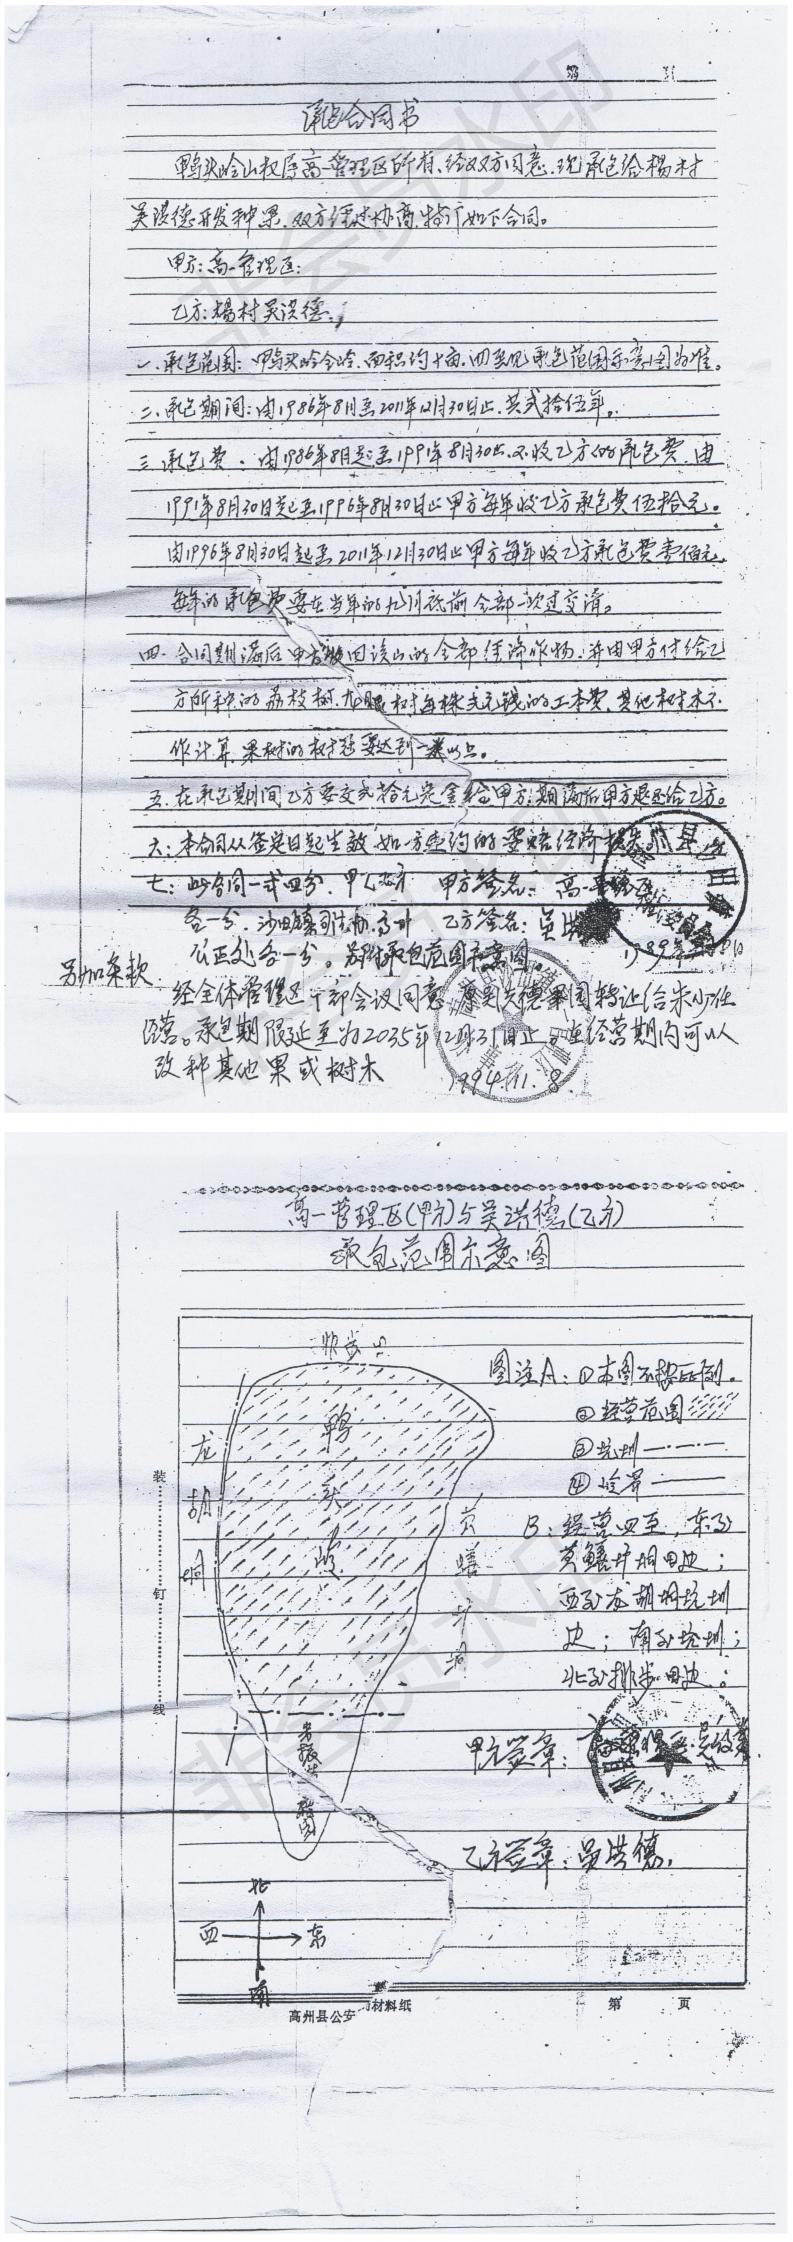 第 页
承包合同书
鸭头岭山权属高一管理区所有、经双方同意、现承包给杨村
吴洪德开发种果、双方经过协商、特订如下合同。
甲方:高一管理区:
乙方:杨村吴洪德.
一.承包范围:鸭头岭全岭、面积约十亩、四至见承包范围示意图为准。
二.承包期间:由1986年8月至2011年12月30日止.共弍拾伍年。
三.承包费:由1986年8月起至1991年8月30止.不收乙方的承包费.由
1991年8月30日起至1996年8月30日止甲方每年收乙方承包费伍拾元。
由1996年8月30日起至2011年12月30日止甲方每年收乙方承包费壹佰元
每年的承包费要在当年的九月底前全部一次过交清。
四.合同期满后甲方收回该山的全部经济作物.并由甲方付给乙
方所种的荔枝树.龙眼树每株 元钱的工本费.其他树木不
作计算.果树的树 要达到一 以上。
五.在承包期间乙方要交弍拾元定金给甲方.期满后甲方退还给乙方。
六:本合同从签定日起生效.如一方违约的要赔经济损失.
七:此合同一式四分.甲乙
甲方签名:高一管理区
各一分.沙田镇司法办.高州
乙方签名:吴洪
公正处各一分。另附承包范围示意图。
1989年
另加条款
经全体管理区干部会议同意 原吴洪德果园转让给朱少 
经营。承包期限延至为2035年12月31日止。在经营期内可以
改种其他果或树木
1994.11.8.
高一管理区(甲方)与吴洪德(乙方)
承包范围示意图
排步
图注A:①本图不按比例。
②经营范围
③坑圳
④岭界
鸭头岭
龙胡垌
黄鳝 垌
B:经营四至,东至
黄鳝 垌田边;
西至龙胡垌坑圳
边;南至坑圳;
北至排步田边。
甲方签章:
乙方签章:吴洪德.
装 钉 线
北
西 东
南
高州县公安 材料纸
第 页
非会员水印
非会员水印